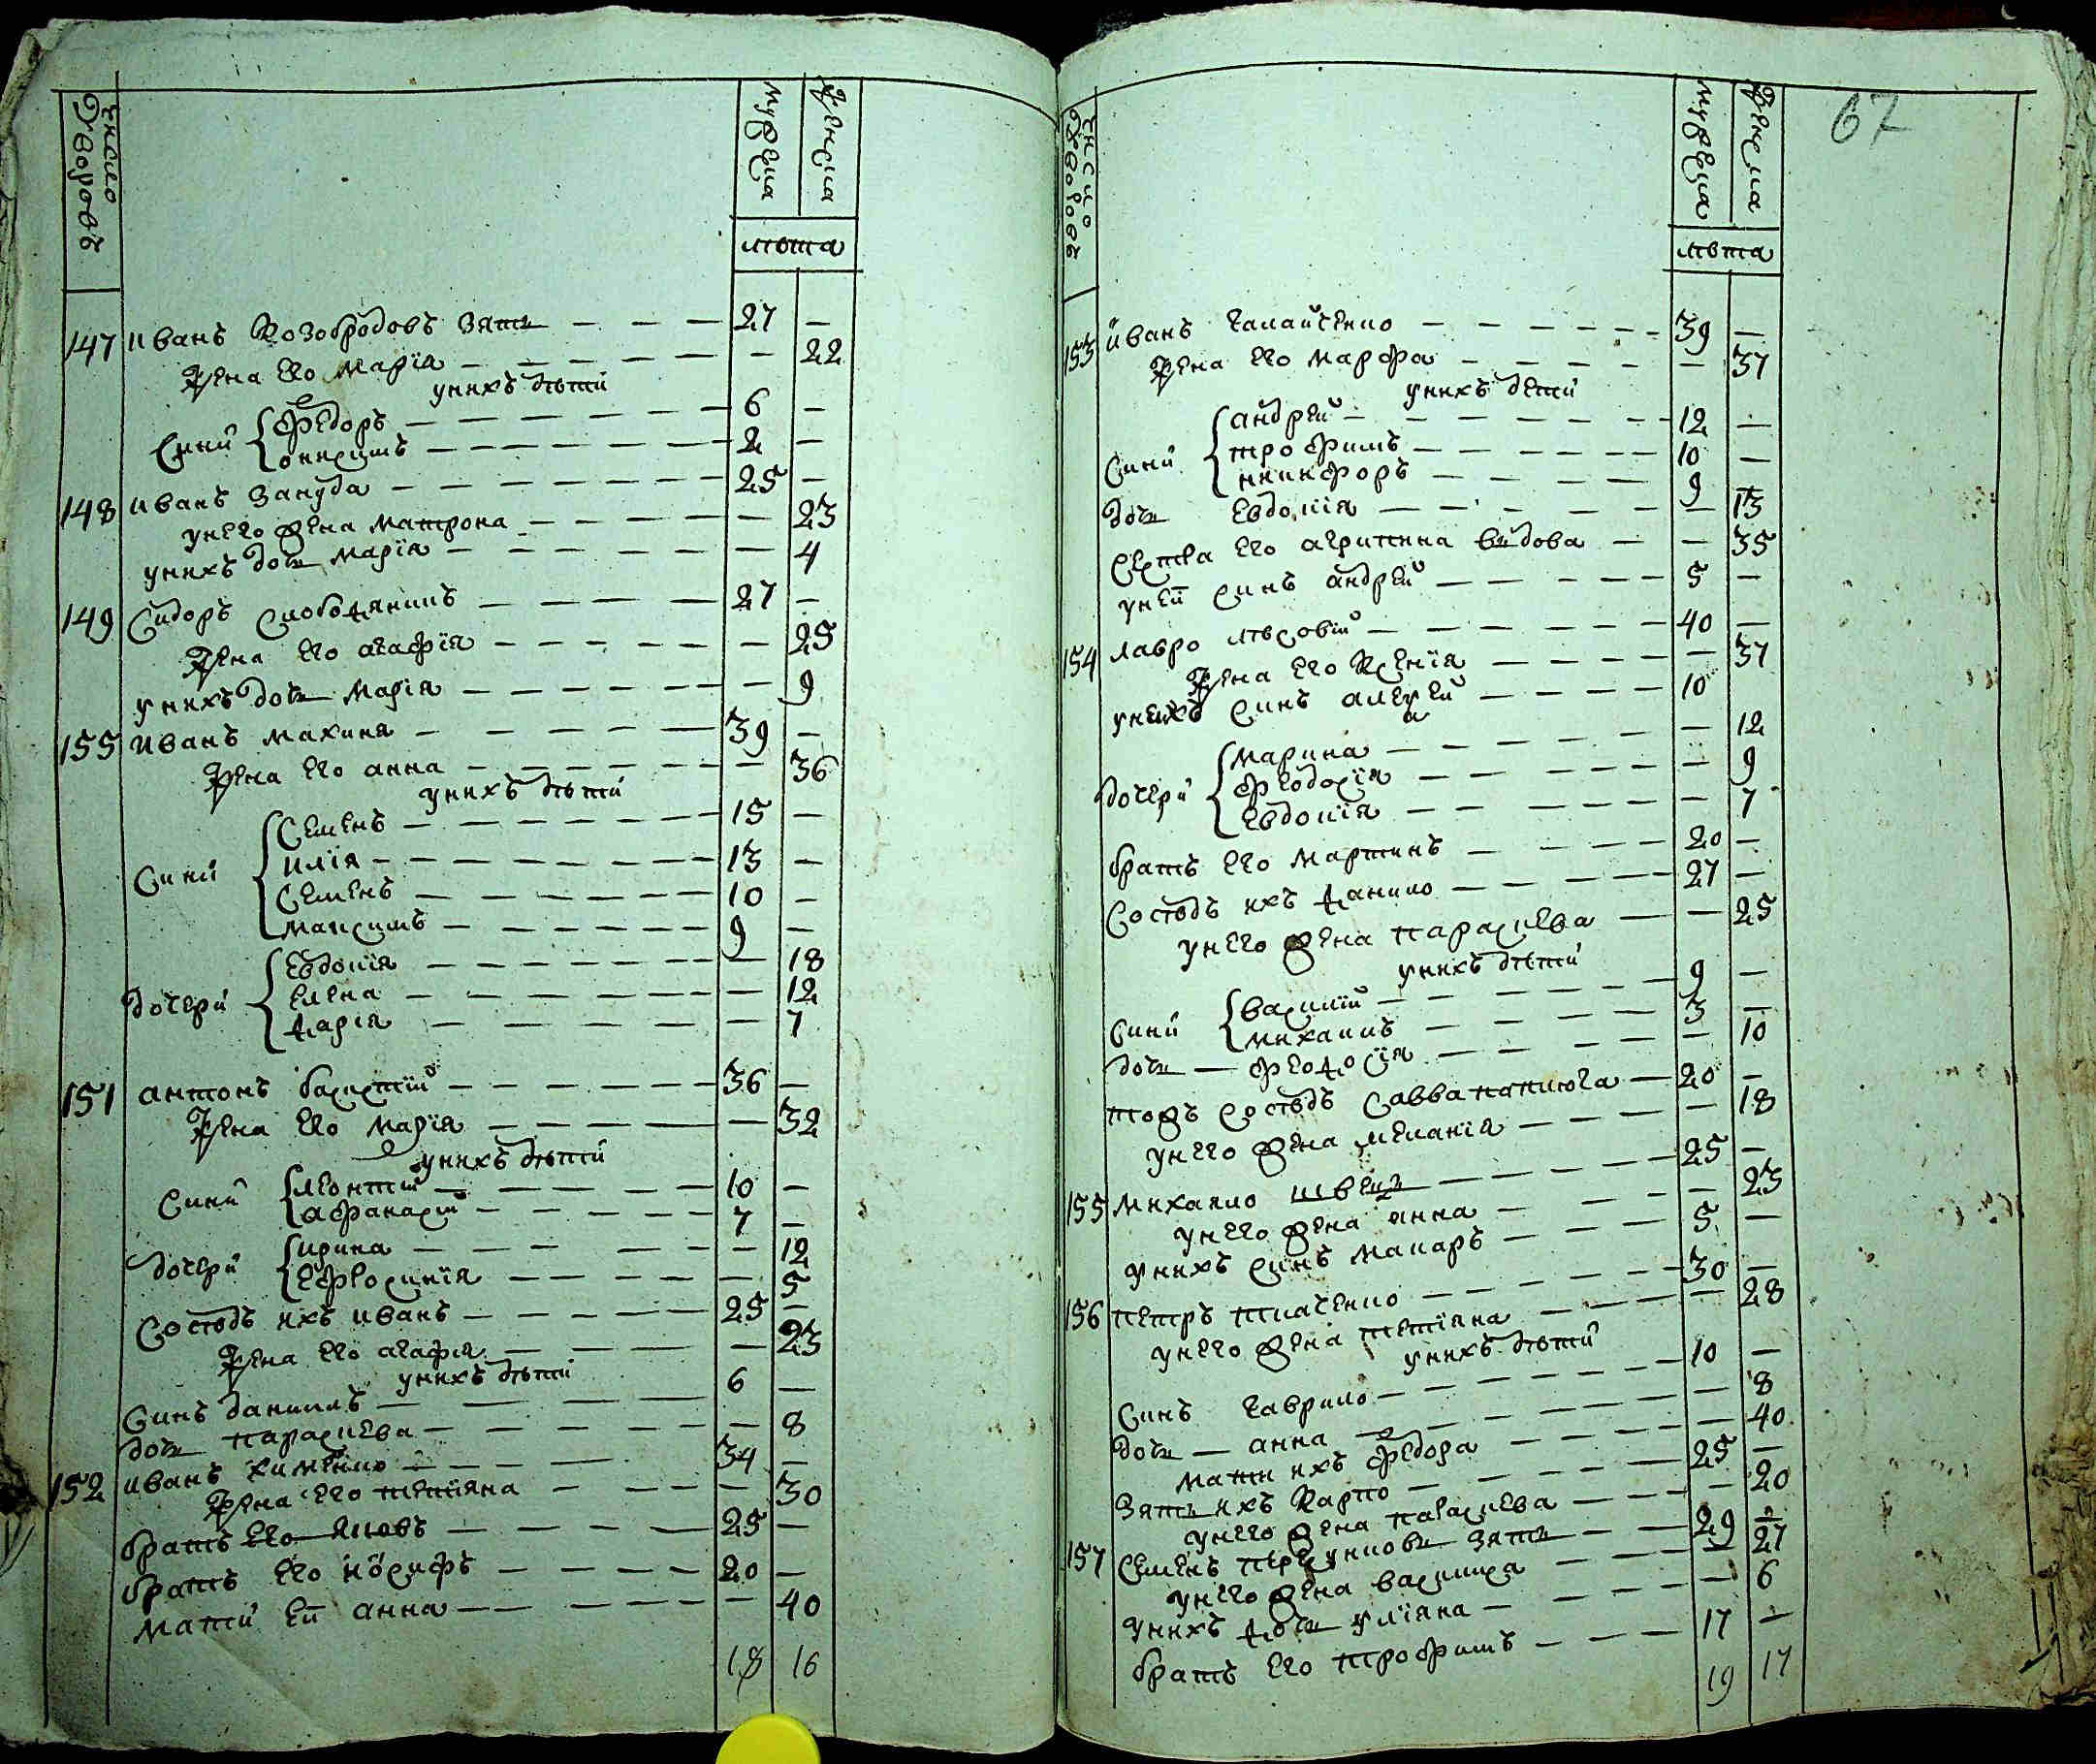 число дворовъ
мужеска
женска
лѣта
147 иванъ Козобродовъ зять — 27 —
жена его Марїя — — 22
унихъ дѣти
сини
федоръ — 6 —
онисимъ — 2 —
148 иванъ Зануда — 25 —
унего жена матрона — — 23
унихъ дочь марїя — — 4
149 Сидоръ слободянинъ — 27 —
жена его агафїя — — 25
унихъ дочь Марїя — — 9
155 иванъ махиня — 39 —
жена его анна — — 36
унихъ дѣти
сини
Семенъ — 15 —
илїя — 13 —
Семенъ — 10 —
максимъ — 9 —
дочери
Евдокїя — — 18
Елена — — 12
дарїя — — 7
151 антонъ — 36 —
жена его Марїя — — 32
унихъ дѣти
сини
леонтїй — 10 —
афанасїй — 7 —
дочери
ирина — — 12
Ефросинїя — — 5
Сосѣдъ ихъ иванъ — 25 —
жена его агафїя — — 23
унихъ дѣти
Синъ данїилъ — 6 —
дочь параскева — — 8
152 иванъ хименко — 34 —
жена его тетїяна — — 30
братъ его яковъ — 25 —
братъ его їосифъ — 20 —
мати ей анна — — 40
18 16
67
число дворовъ
мужеска
женска
лѣта
153 иванъ галайченко — 39 —
жена его марфа — — 37
унихъ дети
сини
андрей — 12 —
трофимъ — 10 —
никифоръ — 9 —
дочь Евдокїя — — 13
сестра его агрипина вьдова — — 35
уней синъ андрей — 5 —
154 лавро лѣсовїй — 40 —
жена его Ксенїя — — 37
унихъ синъ алексей — 10
дочери
марина — — 12
феодосїя — — 9
Евдокїя — — 7
братъ его мартинъ — 20 —
Сосѣдъ ихъ данило — 27 —
унего жена параскева — — 25
унихъ дѣти
сини
василїй — 9 —
михаилъ — 3 —
дочь — феодосїя — — 10
тожъ сосѣдъ Савва паплюга — 20 —
унего жена меланїя — — 18
155 михайло швець — 25 —
унего жена анна — — 23
унихъ синъ макаръ — 5 —
156 петръ ткаченко — 30 —
унего жена тетїяна — — 28
унихъ дѣти
Синъ гаврило — 10 —
дочь — анна — — 8
мати ихъ федора — — 40
зять ихъ Карпо — 25 —
унего жена параскева — — 20
157 Семенъ зять — 29 —
унего жена василиса — — 27
унихъ дочь улїяна — — 6
братъ его трофимъ — 17 —
19 17